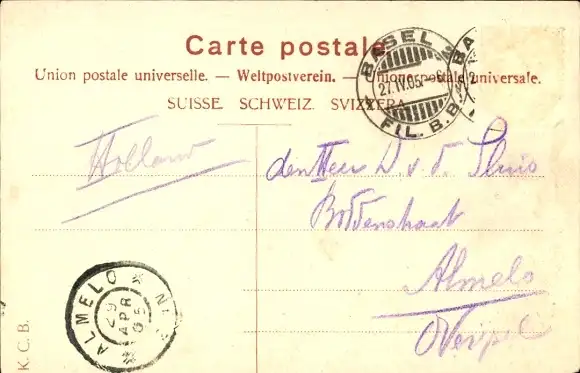 Carte postale.
Union postale universelle. — Weltpostverein. — Unione postale universale.
SUISSE. SCHWEIZ. SVIZZERA.
BASEL
27.IV.05
FIL. B.B.
BA
Holland
den Heer D. v. d. Sluis
Almelo
ALMELO
29 APR 05
K. C. B.